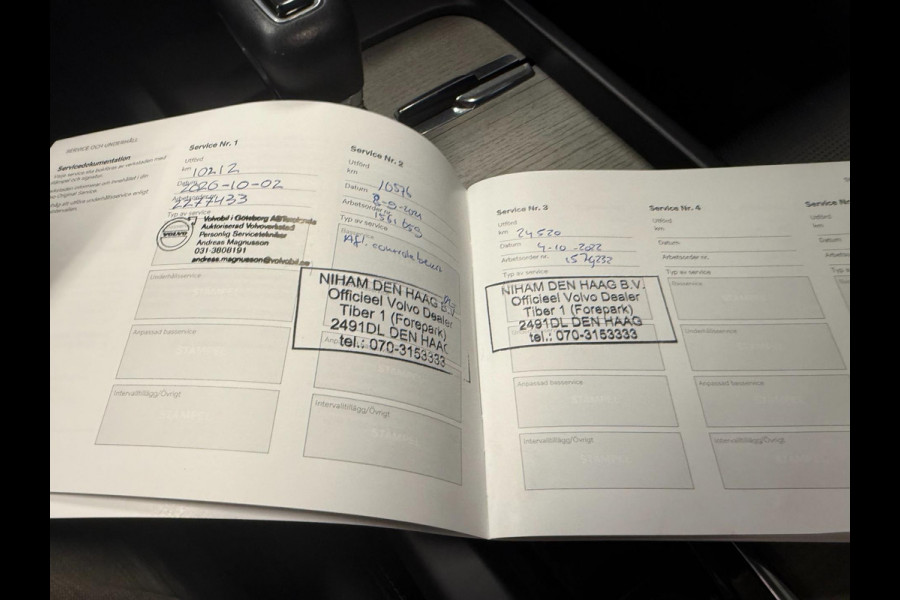 SERVICE OCH UNDERHÅLL
Servicedokumentation
Service Nr. 1
Utförd
km 10212
Datum 2020-10-02
Arbetsorder nr. 2277433
Typ av service
VOLVO
Volvobil i Göteborg AB
Auktoriserad Volvoverkstad
Personlig Servicetekniker
Andreas Magnusson
031-3808191
andreas.magnusson@volvobil.se
Underhållsservice
Anpassad basservice
Intervalltillägg/Övrigt
Service Nr. 2
Utförd
km 10576
Datum
Arbetsorder nr.
Typ av service
NIHAM DEN HAAG B.V.
Officieel Volvo Dealer
Tiber 1 (Forepark)
2491DL DEN HAAG
tel.: 070-3153333
Intervalltillägg/Övrigt
Service Nr. 3
Utförd
km 24520
Datum 4-10-2022
Arbetsorder nr.
Typ av service
NIHAM DEN HAAG B.V.
Officieel Volvo Dealer
Tiber 1 (Forepark)
2491DL DEN HAAG
tel.: 070-3153333
Anpassad basservice
Intervalltillägg/Övrigt
Service Nr. 4
Utförd
km
Datum
Arbetsorder nr.
Typ av service
Basservice
Underhållsservice
Anpassad basservice
Intervalltillägg/Övrigt
Service Nr
Utförd
km
Datum
Arbetsorder
Typ av